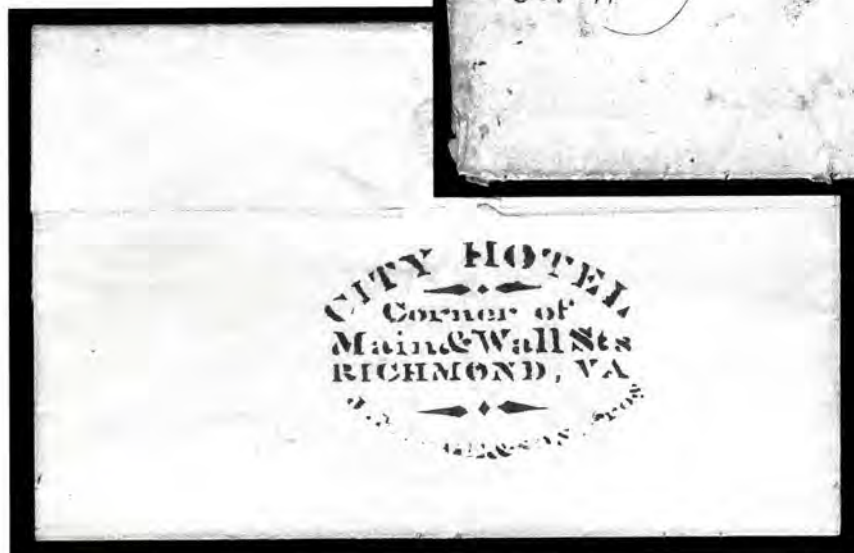 CITY HOTEL
Corner of
Main & Wall Sts
RICHMOND, VA
& SON